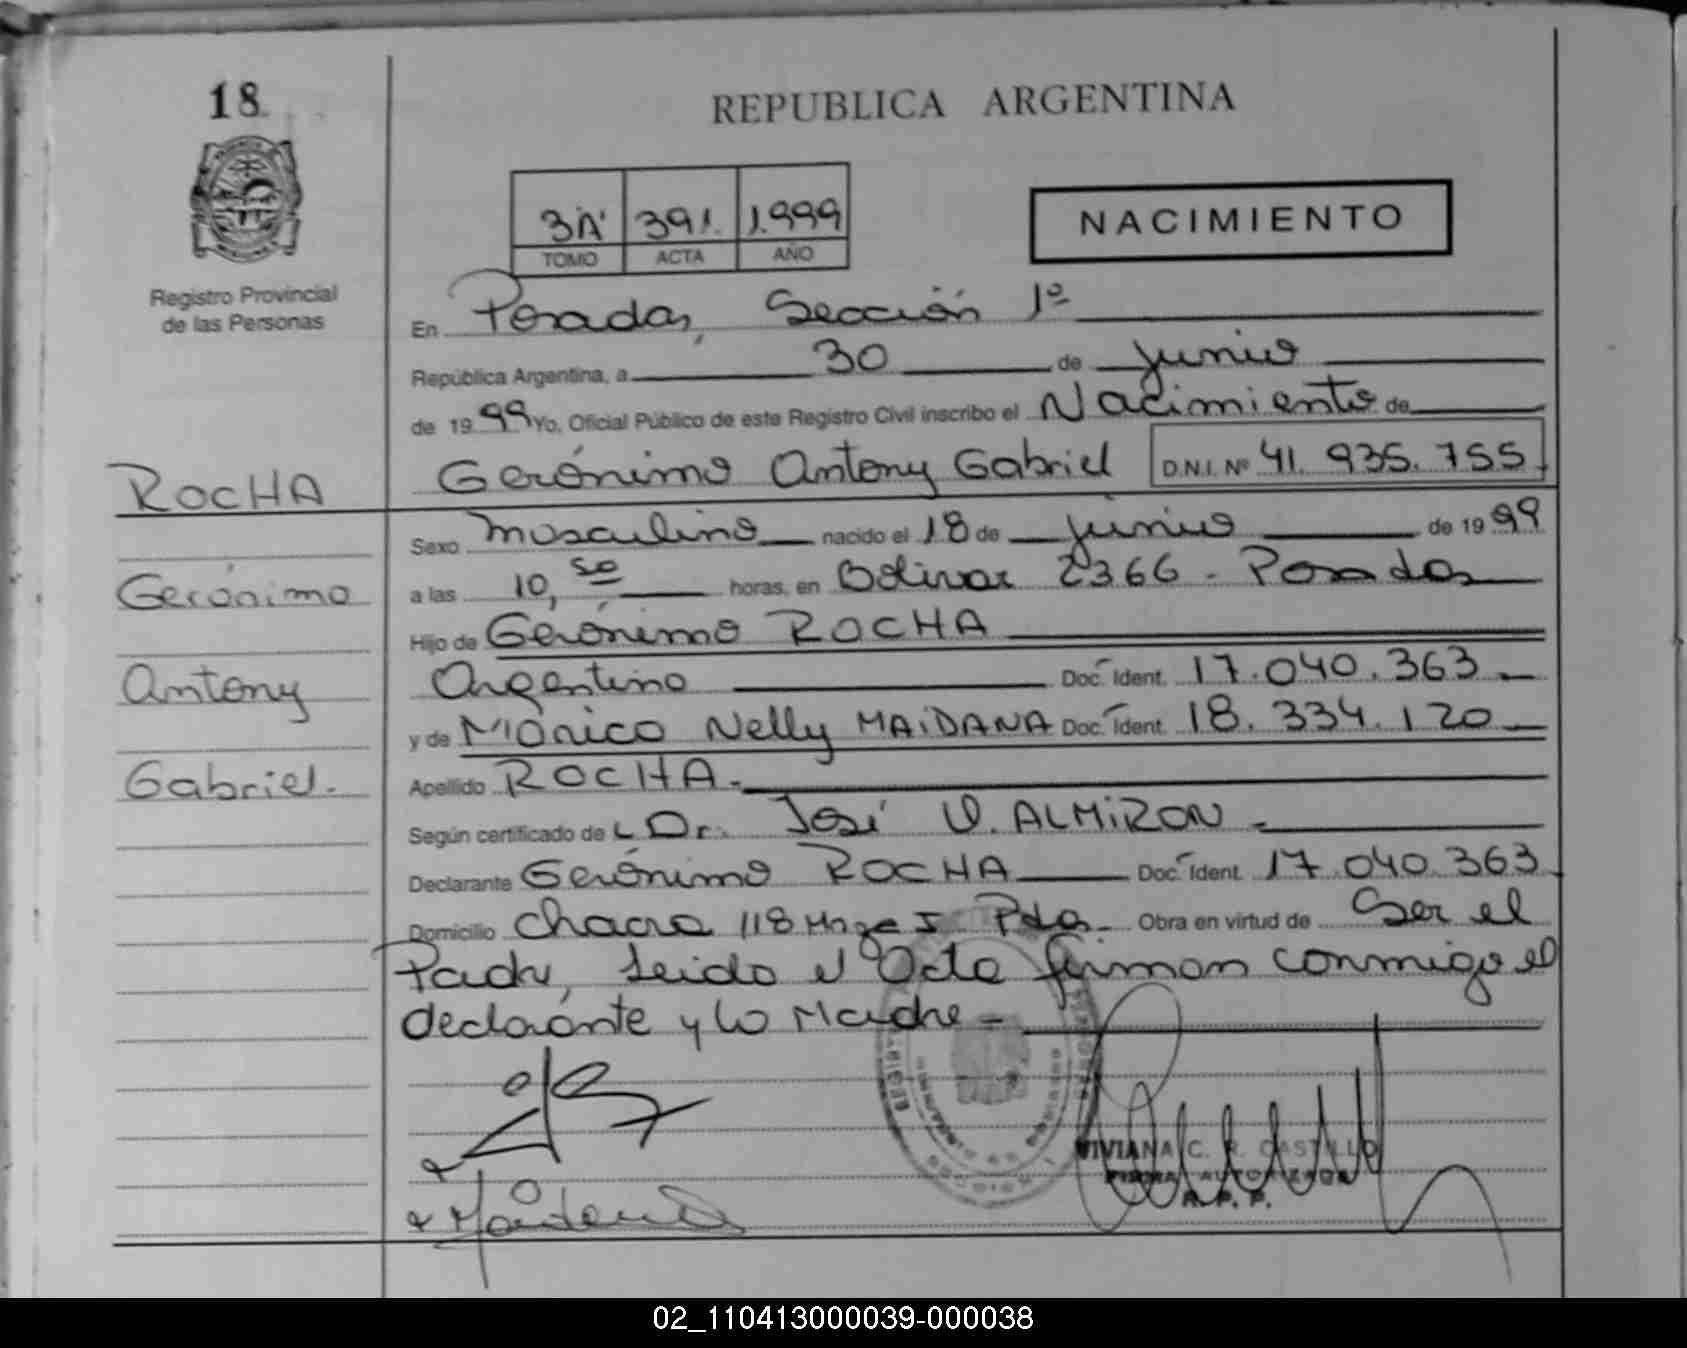 18
REPUBLICA ARGENTINA
3"A" 391. 1.999
TOMO ACTA AÑO
NACIMIENTO
Registro Provincial
de las Personas
En Posadas, Sección 1º
República Argentina, a 30 de junio
de 1999 Yo, Oficial Público de este Registro Civil inscribo el Nacimiento de
ROCHA
Gerónimo Antony Gabriel D.N.I. Nº 41.935.755
Sexo masculino nacido el 18 de junio de 1999
Gerónimo
a las 10,50 horas, en Bolivar 2366 - Posadas
Hijo de Gerónimo ROCHA
Antony
Argentino Doc. Ident. 17.040.363
y de Mónica Nelly MAIDANA Doc. Ident. 18.334.120
Gabriel.
Apellido ROCHA.
Según certificado de L Dr. José V. ALMIRON
Declarante Gerónimo ROCHA Doc. Ident. 17.040.363
Domicilio Chacra 118 Mnza I Pdas. Obra en virtud de Ser el
Padre, Leido el Acta firman conmigo el
declarante y la Madre
VIVIANA C. R. CASTILLO
FIRMA AUTORIZADA
R. P. P.
02_110413000039-000038